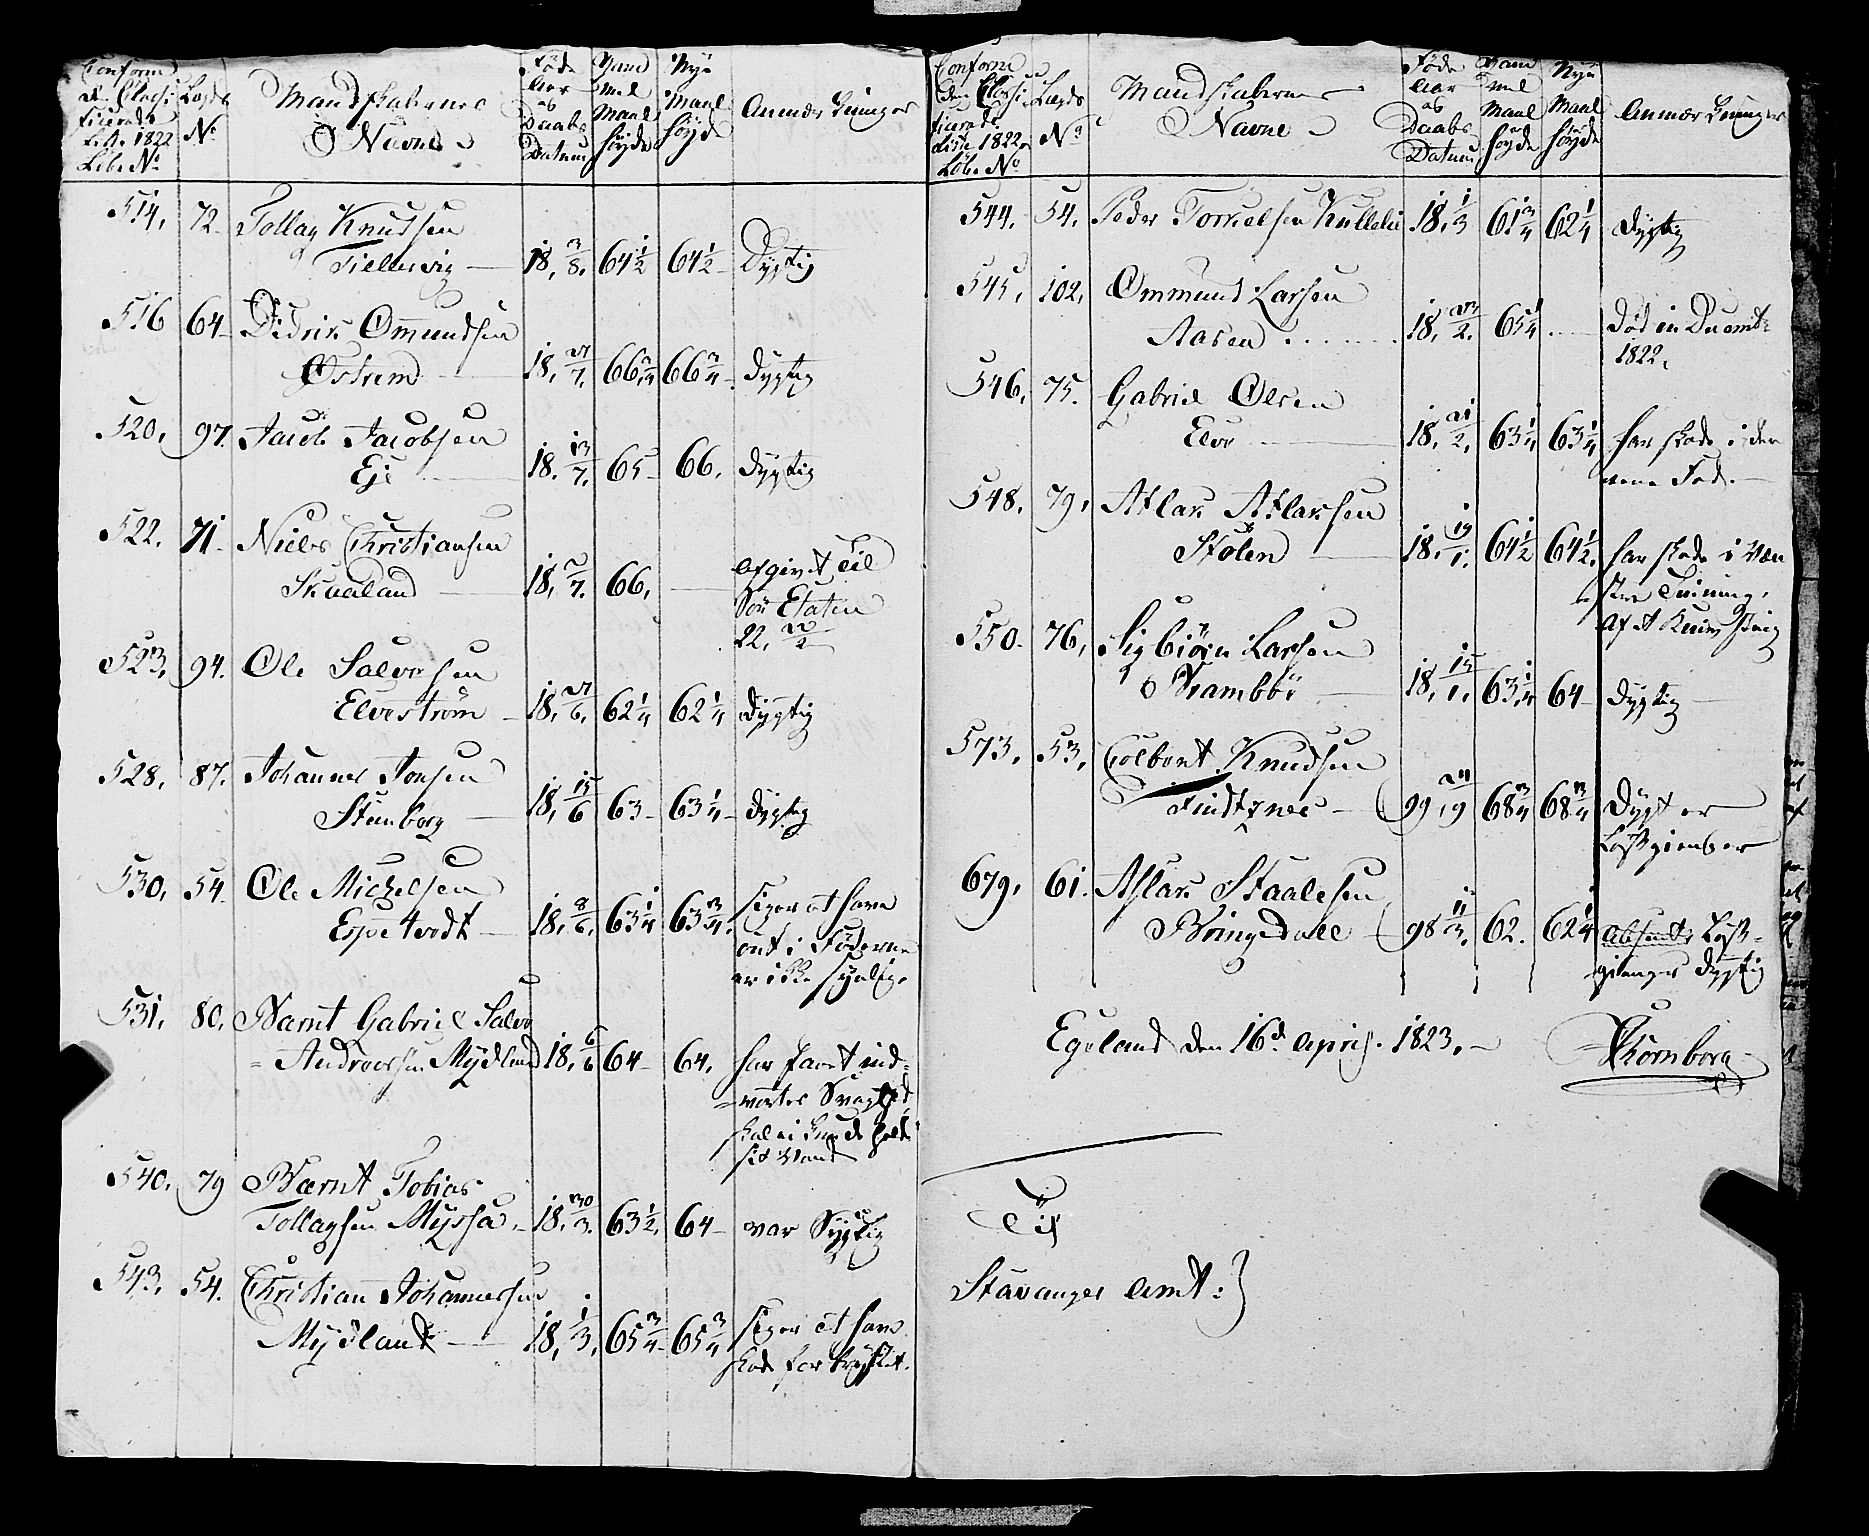 Conforme
den Classi
ficerede
Liste 1822
Löb. No
Lægds
No
Mandskabernes
Navne
Föde
Aar
og
Daabs
Datum
Gam̄
mel
Maal
höyde
Nye
Maal
höyde
Anmærkninger
514. 72. Tollag Knudsen
Fiellesvig — 18. 3/8. 64 1/2 64 1/2 Dygtig
516 64 Didrik Omundsen
Østrem 18. 27/7. 66 3/4 66 3/4 Dygtig
520. 97. Jacob Jacobsen
Eje 18. 13/7. 65 66. Dygtig
522. 71. Niels Christiansen
Skaaland 18. 2/7. 66. Afgivet til
Söe Etaten
22. 22/2
523. 94. Ole Salvesen
Elveström 18. 27/6. 62 1/4 62 1/4 Dygtig
528. 87. Johannes Jonsen
Steenborg 18. 15/6 63 63 1/4 Dygtig
530. 54. Ole Michelsen
Espetvedt 18. 8/6. 63 1/4 63 3/4 siger at have
ont i Föderne
er ikke synlig.
531. 80. Barnt Gabriel Salve
Andreersen Mydland 18. 6/6 64 64. har faaet ind-
vortes Svaghed,
skal ei kunde holde
sit Vand
540. 79 Bærnt Tobias
Tollagsen Myssa 18. 30/3. 63 1/2. 64 var Sygtig
543. 54. Christian Johannessen
Mydland 18. 1/3. 65 3/4 65 3/4 siger at have
skade for Brystet.
Conforme
den Classi
ficerede
Liste 1822
Löb. No
Lægds
No
Mandskabernes
Navne
Föde
Aar
og
Daabs
Datum
Gam
mel
Maal
höyde
Nye
Maal
höyde
Anmærkninger
544. 54. Peder Torkelsen 18. 1/3 61 3/4 62 1/4 Dygtig
545. 102. Ommund Larsen
Aasen . . . . . . 18. 23/2. 65 1/4 Död in Decembr
1822.
546. 75. Gabriel Olsen
Elve 18. 21/2. 63 1/4 63 1/4 har skade i den
ene Fod.
548. 79. Atlak Atlaksen
Stölen 18. 19/1. 64 1/2 64 1/2. har skade i Ven
stre Tinning,
af et
550. 76. Sigbiörn Larsen
Bramböe 18. 15/1. 63 1/4 64 Dygtig
573. 53. Colbent Knudsen
99 24/9 68 3/4 68 3/4 Dygt er
Lösgienger
679. 61. Aslak Staalesen
Bringedall 98 11/3. 62. 62 1/4 absent Lös-
gienger Dygtig
Egeland den 16d April. 1823.
Thornborg
Til
Stavanger Amt: